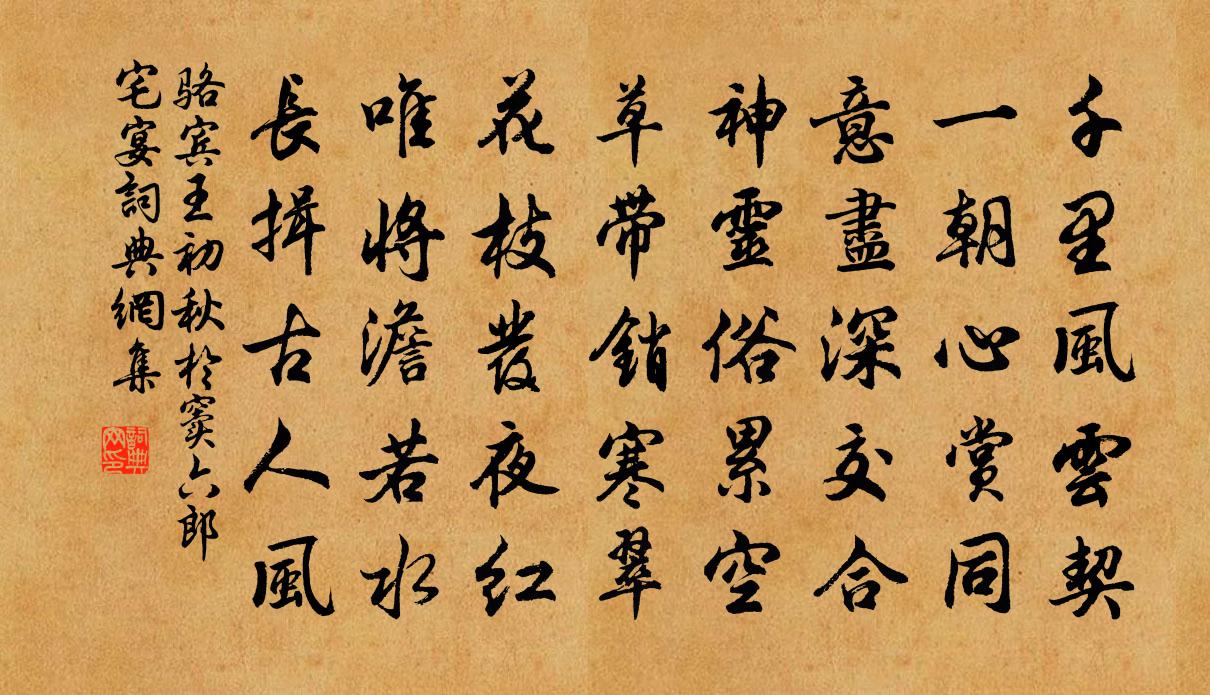 千里風雲契
一朝心賞同
意盡深交合
神靈俗累空
草帶銷寒翠
花枝發夜红
唯將澹若水
長揖古人風
骆宾王初秋於窦六郎
宅宴詞典網集
詞典
网印